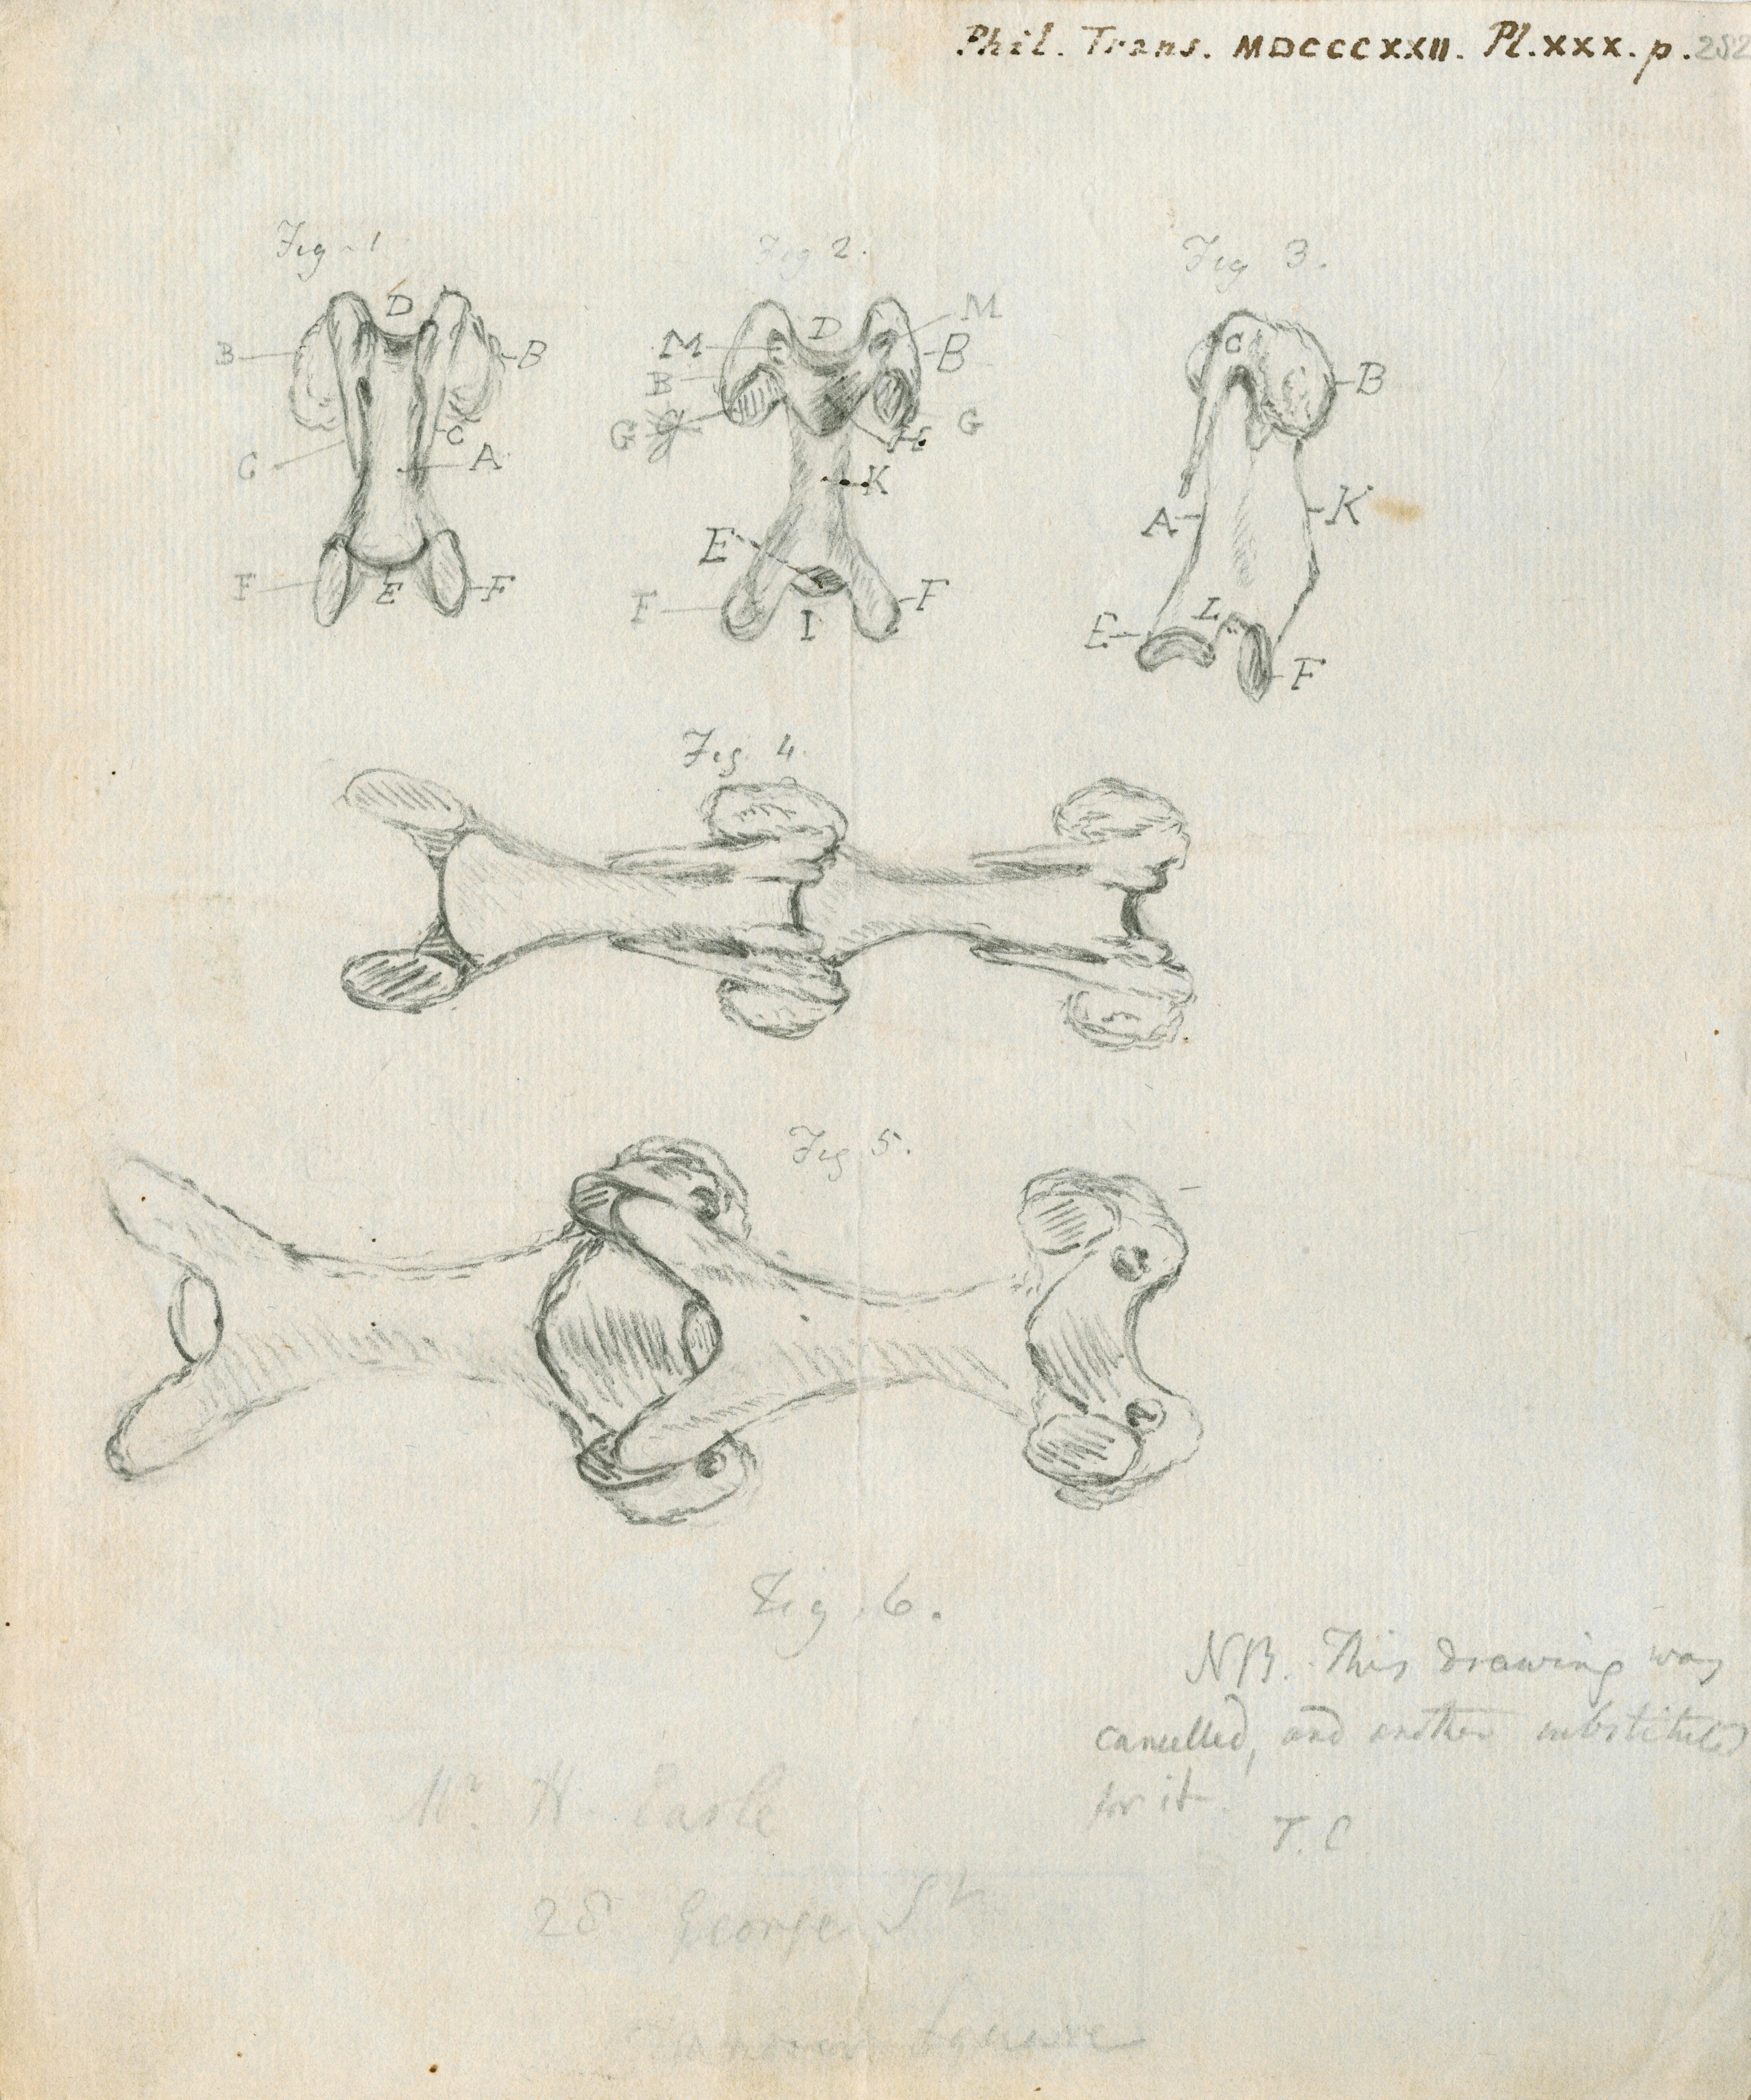 Phil. Trans. MDCCCXXII. Pl. XXX. p. 282
Fig. 1
Fig 2.
Fig 3.
D
B
B
C
C
A
F
E
F
M
D
M
B
B
G
G
H
K
E
F
I
F
C
B
A
K
E
L
F
Fig. 4.
Fig 5.
Fig. 6.
NB. This drawing was
cancelled, and another substituted
for it.
T. C
Mr. H Earle
28 George St
Hanover Square